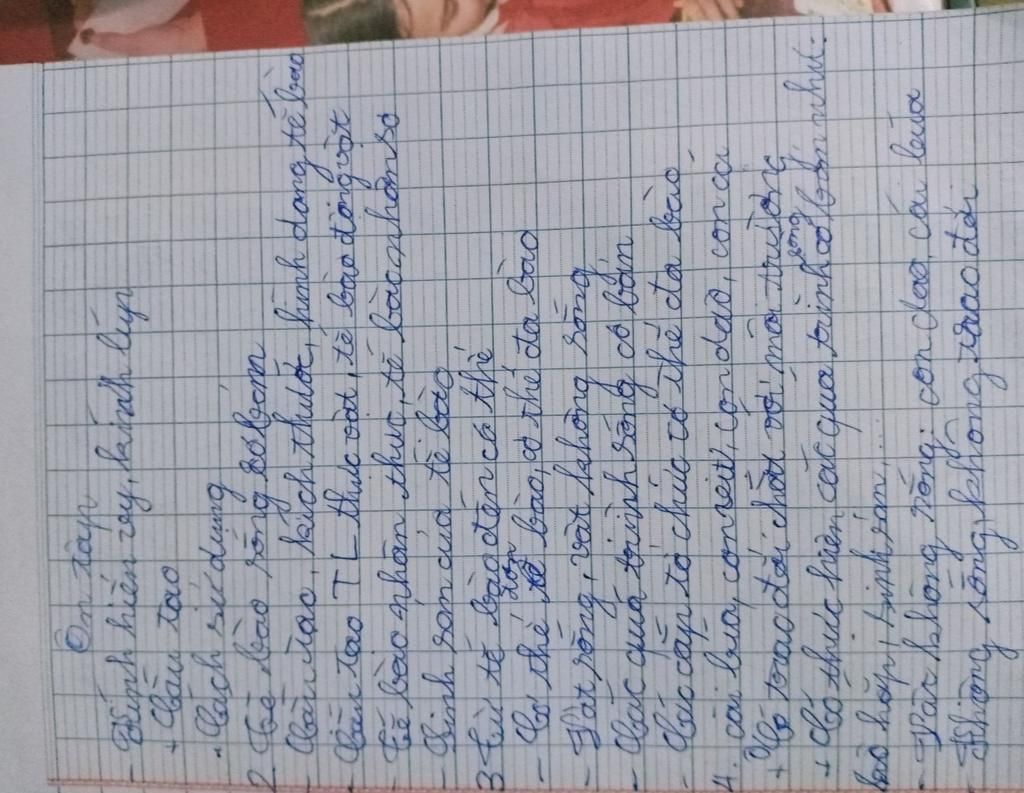 Ôn tập
- Kính hiển vy, kính lúp
+ Cấu tạo
+ Cách sử dụng
2 Tế bào sống cơ bản
- Cấu tạo, kích thước, hình dạng tế bào
- Cấu tạo TL thực vật, tế bào động vật
- Tế bào nhân thực, tế bào nhân sơ
- Sinh sản của tế bào
3 Từ tế bào đến cơ thể
- Cơ thể đơn bào, cơ thể đa bào
- Vật sống, vật không sống
- Các quá trình sống cơ bản
- Các cấp tổ chức cơ thể đa bào
4. cái búa, con dao, con cá
+ Có trao đổi chất với môi trường
+ Có thực hiện các quá trình sống cơ bản như:
hô hấp, sinh sản,...
- Vật không sống: con dao, cái búa
- Không sống, không trao đổi